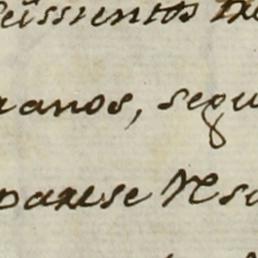 seissientos
ranos, segu
parese Resu